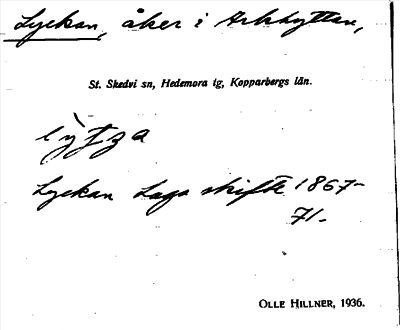 Lyckan, åker i Arkhyttan,
St. Skedvi sn, Hedemora tg, Kopparbergs län.
Lyckan Laga skifte 1867-
71.
OLLE HILLNER, 1936.